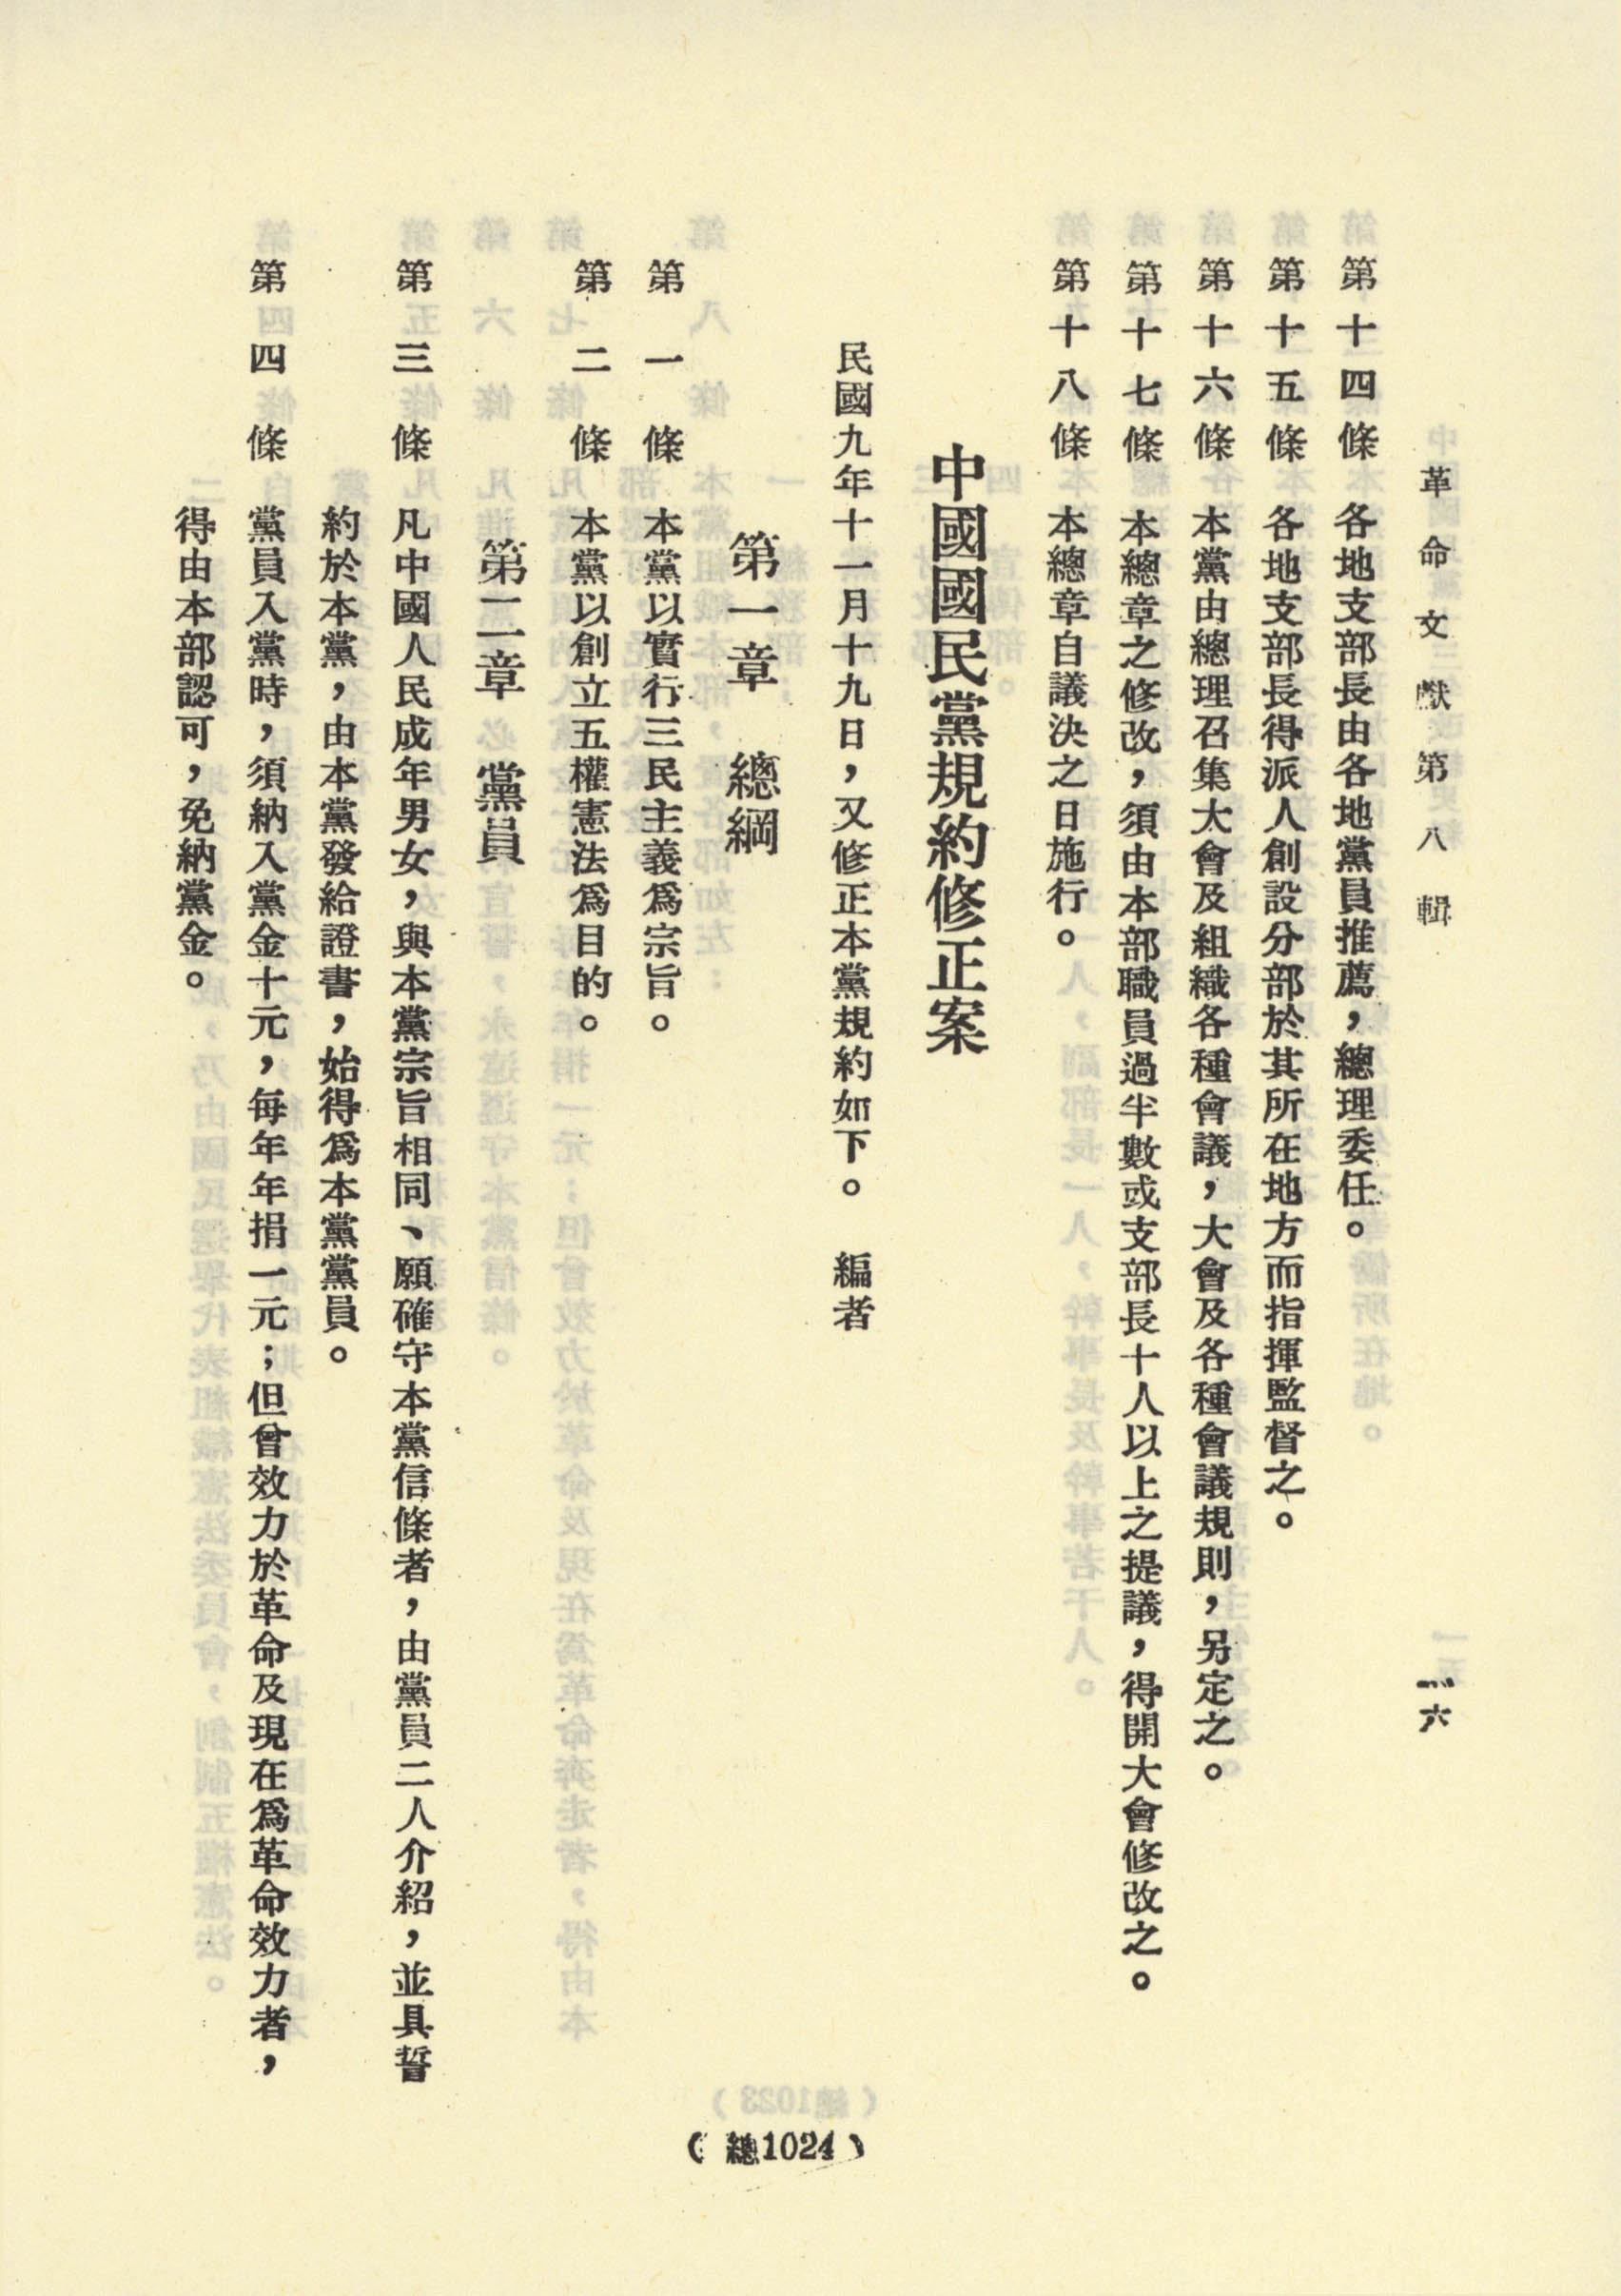 革命文獻第八輯
一六
第十四條 各地支部長由各地黨員推薦，總理委任。
第十五條 各地支部長得派人創設分部於其所在地方而指揮監督之。
第十六條 本黨由總理召集大會及組織各種會議，大會及各種會議規則，另定之。
第十七條 本總章之修改，須由本部職員過半數或支部長十人以上之提議，得開大會修改之。
第十八條 本總章自議決之日施行。
中國國民黨規約修正案
民國九年十一月十九日，又修正本黨規約如下。 編者
第一章 總綱
第一條 本黨以實行三民主義爲宗旨。
第二條 本黨以創立五權憲法爲目的。
第二章 黨員
第三條 凡中國人民成年男女，與本黨宗旨相同、願確守本黨信條者，由黨員二人介紹，並具誓
約於本黨，由本黨發給證書，始得爲本黨黨員。
第四條 黨員入黨時，須納入黨金十元，每年年捐一元；但曾效力於革命及現在爲革命效力者，
得由本部認可，免納黨金。
（總1024）